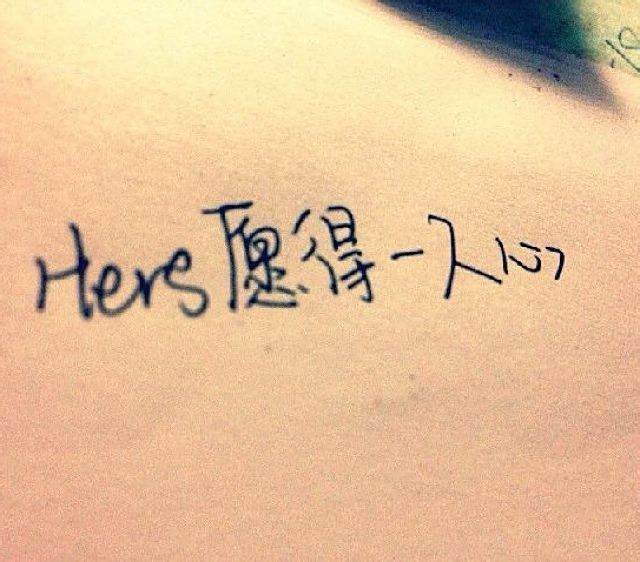 Hers愿得一人心